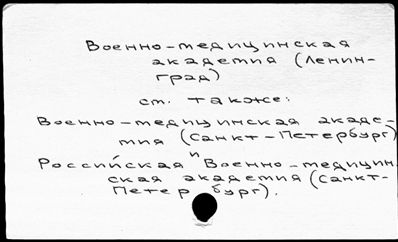 Военно-медицинская
академия (Ленин-
град)
см. также:
Военно-медицинская акаде-
мия (Санкт-Петербург)
и
Российская Военно-медицин.
ская академия (Санкт-
Петербург).